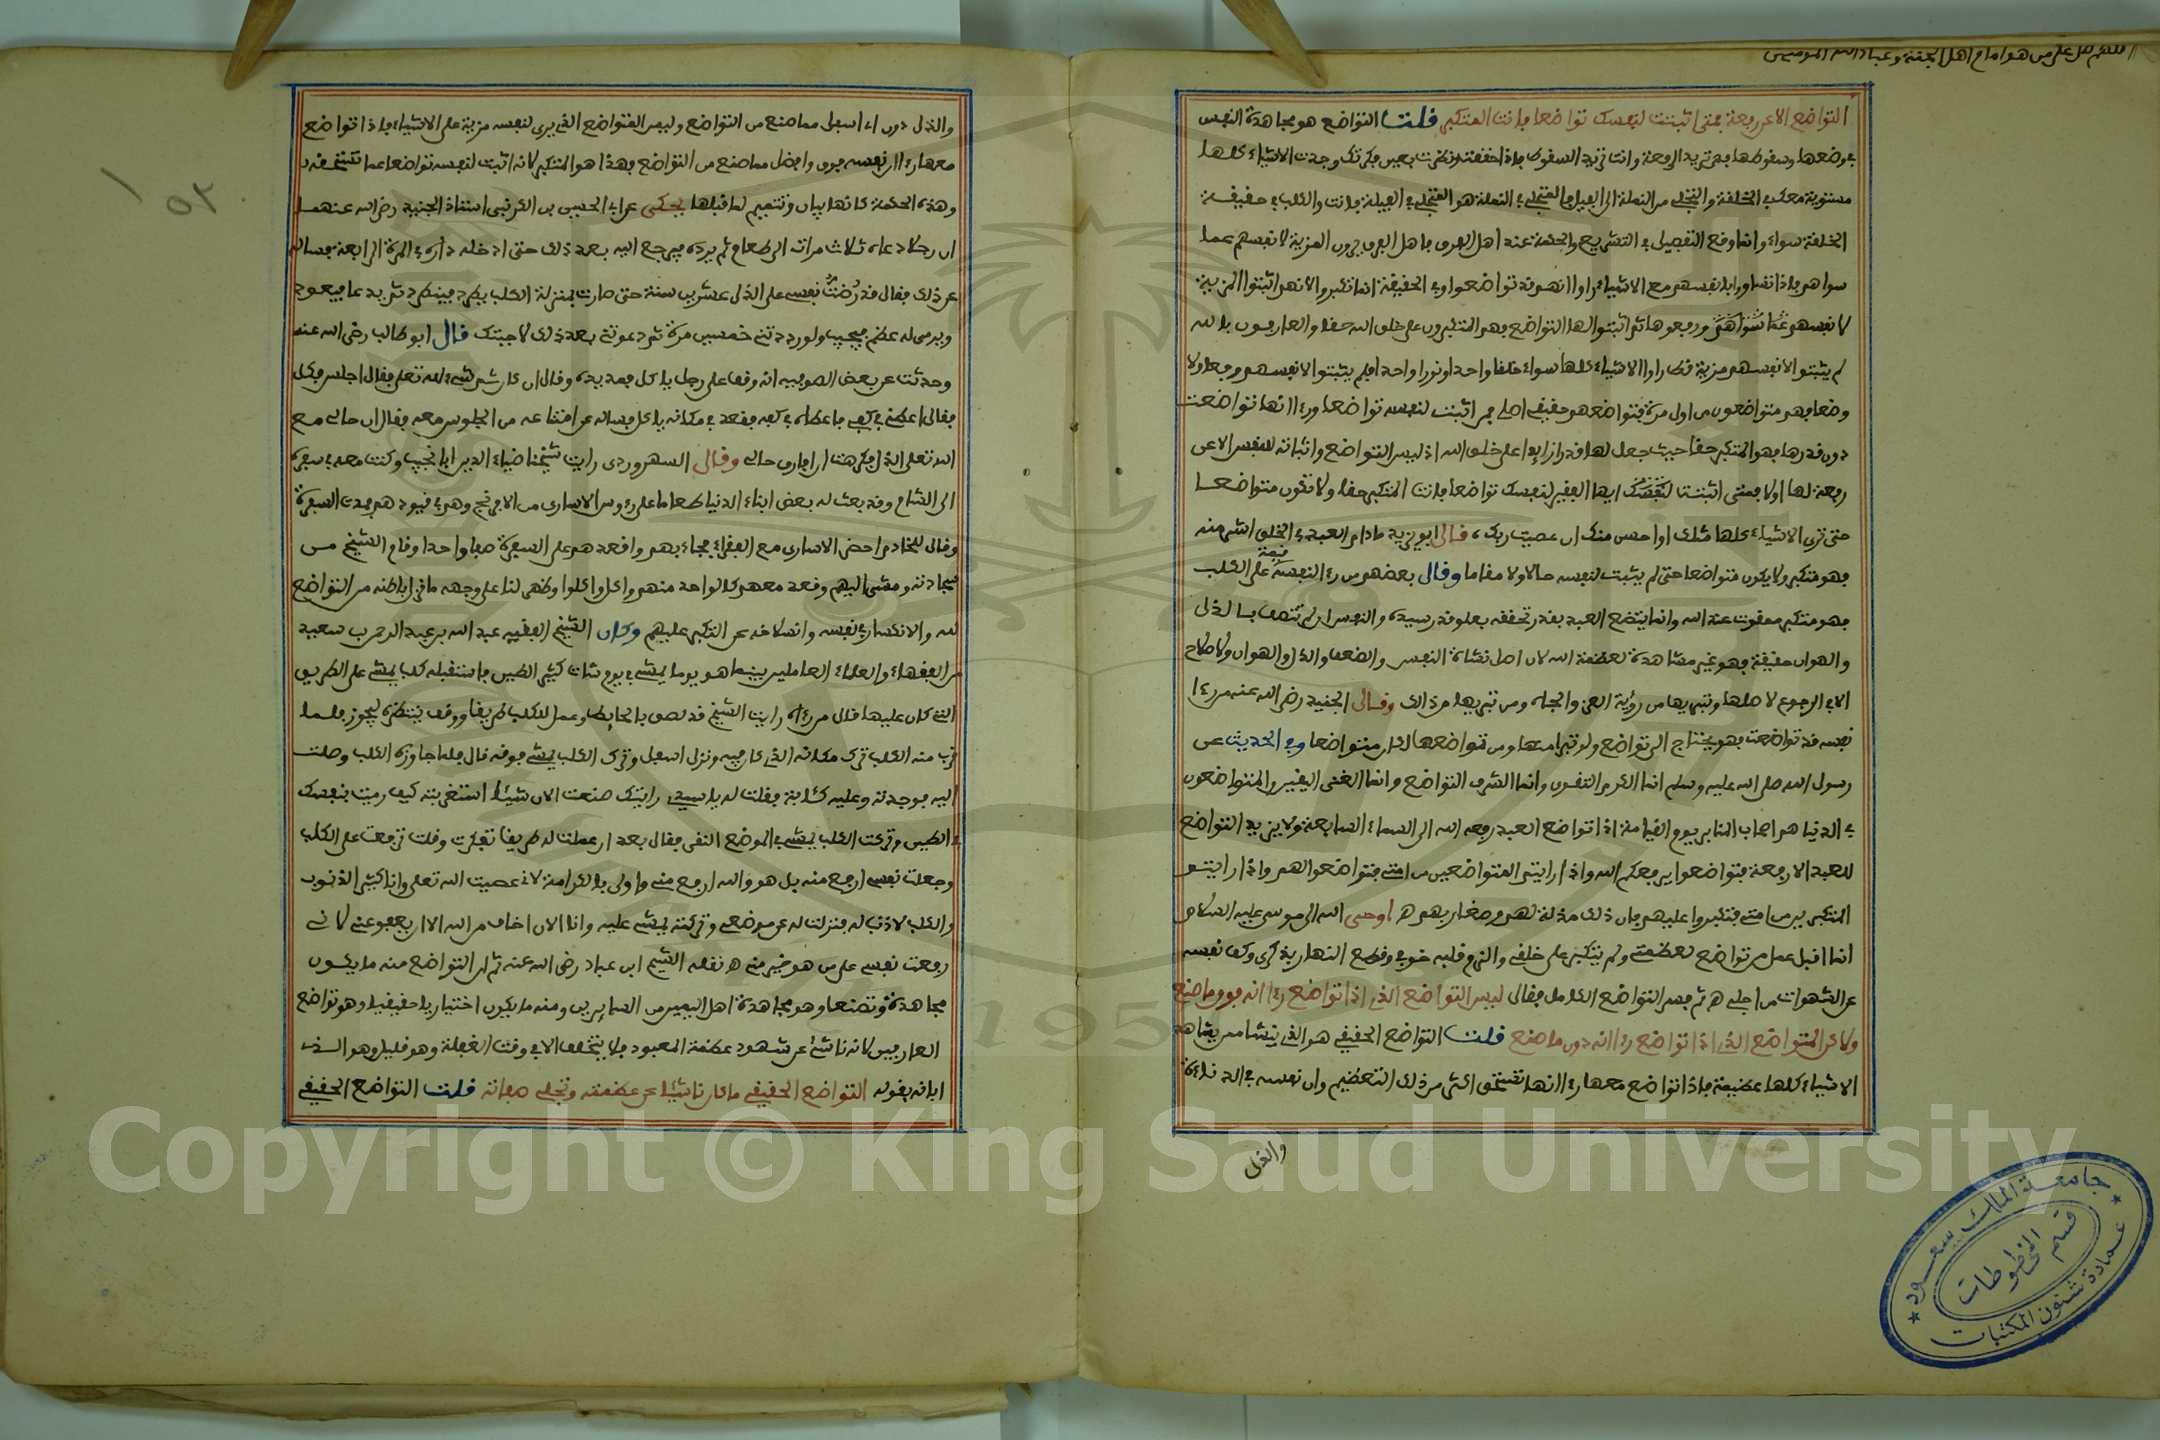 اللهم صل على من هو امام اهل الجنة وعباد الله المومنين
التواضع الا عن رفعة فمتى اثبتت لنفسك تواضعا فانت المتكبر قلت التواضع هو مجاهدة النفس
في وضعها وسقوطها فهي تريد الرفعة وانت تريد السقوط فاذا حققت ونظرت بعين فكرتك وجدت الاشياء كلها
مستوية معك في الخلقة والتجلي من النملة الى الفيل فالمتجلي في النملة هو المتجلي في الفيلة فانت والكلب في حقيقة
الخلقة سواء وانما وقع التفضيل في التشريع والحكمة عند اهل الفرق فاهل الفرق يرون المزية لانفسهم عما
سواهم فاذا تساووا بانفسهم مع الاشياء راوا انهم قد تواضعوا وفي الحقيقة انما تكبروا لانهم اثبتوا المزية
لانفسهم عما سواهم ورفعوها ثم اثبتوا لها التواضع فهم المتكبرون على خلق الله حقا والعارفون بالله
لم يثبتوا لانفسهم مزية قط راوا الاشياء كلها سواء خلقا واحدا ونورا واحدا فلم يثبتوا لانفسهم رفعا ولا
وضعا فهم متواضعون من اول مرة فتواضعهم حقيقي اصلي فمن اثبت لنفسه تواضعا ورءا انها تواضعت
دون قدرها فهو المتكبر حقا حيث جعل لها قدرا زايدا على خلق الله اذ ليس التواضع واثباته للنفس الا عن
رفعة لها اولا فمتى اثبت لنفسك ايها الفقير لنفسك تواضعا فانت المتكبر حقا ولا تكون متواضعا
حتى ترى الاشياء كلها مثلك او احسن منك ان عصيت ربك قال ابو يزيد ما دام العبد في الخلق اشر منه
فهو متكبر ولا يكون متواضعا حتى لم يثبت لنفسه حالا ولا مقاما وقال بعضهم من رءا لنفسه قيمة على الكلب
فهو متكبر ممقوت عند الله وانما يتضع العبد بقدر تحققه بعلو قدر سيده والنفس ان لم تتصف بالذل
والهوان حقيقة فهو غير مشاهدة لعظمة الله لان اصل نشاة النفس والضعف والذل والهوان ولا صلاح
الا في الرجوع لاصلها وتبريها من رؤية العز والجاه ومن تبريها من ذلك وقال الجنيد رضي الله عنه من رءا
نفسه قد تواضعت فهو يحتاج الى تواضع ولو تبرا منها ومن تواضعها لكان متواضعا وفي الحديث عن
رسول الله صلى الله عليه وسلم انما الكرم التقوى وانما الشرف التواضع وانما الغنى اليقين والمتواضعون
في الدنيا هم اصحاب المنابر يوم القيامة اذا تواضع العبد رفعه الله الى السماء السابعة ولا يزيد التواضع
للعبد الا رفعة فتواضعوا يرفعكم الله واذا رايتم المتواضعين من امتي فتواضعوا لهم واذا رايتم
المتكبرين من امتي فتكبروا عليهم فان ذلك مذلة لهم وصغار بهم ه اوحى الله الى موسى عليه السلام
انما اقبل عمل من تواضع لعظمتي ولم يتكبر على خلقي والزم قلبه خوفي وقطع النهار بذكري وكف نفسه
عن الشهوات من اجلي ه ثم فسر التواضع الكامل فقال ليس التواضع الذي اذا تواضع رءا انه فوق ما صنع
ولاكن المتواضع الذي اذا تواضع رءا انه دون ما صنع قلت التواضع الحقيقي هو الذي ينشا ممن يشاهد
الاشياء كلها عظيمة فاذا تواضع معها رءا انها تستحق اكثر من ذلك التعظيم وان نفسه في الدناءة
والذل
والذل دون اي اسفل مما صنع من التواضع وليس المتواضع الذي يرى لنفسه مزية على الاشياء فاذا تواضع
معها رءا ان نفسه فوق وافضل مما صنع من التواضع فهذا هو المتكبر لانه اثبت لنفسه تواضعا عما تستحقه
وهذه الحكمة كانها بيان وتتميم لما قبلها يحكى عن ابي الحسين بن الكرنبي استاذ الجنيد رضي الله عنهما
ان رجلا دعاه ثلاث مرات الى طعام ثم يرده فيرجع اليه بعد ذلك حتى ادخله داره في المرة الرابعة فساله
عن ذلك فقال قد رُضْتُ نفسي على الذل عشرين سنة حتى صارت بمنزلة الكلب يطرد فينطرد ثم يدعا فيعود
ويرمى له عظم فيجيب ولو رددتني خمسين مرة ثم دعوتني بعد ذلك لاجبتك قال ابو طالب رضي الله عنه
وحدثت عن بعض الصوفية انه وقف على رجل ياكل فمد يده وقال ان كان ثم شيء لله تعلى فقال اجلس فكل
فقال اعطني في كفي فاعطاه في كفه فقعد في مكانه ياكل فساله عن امتناعه من الجلوس معه فقال ان حالي مع
الله تعلى الذل فكرهت ان افارق حالي وقال السهروردي رايت شيخنا ضياء الدين ابا نجيب وكنت معه في سفره
الى الشام وقد بعث له بعض ابناء الدنيا طعاما على رءوس الاسارى من الافرنج وهم في قيودهم فمدت السفرة
وقال للخادم احضر الاسارى مع الفقراء فجاء بهم واقعدهم على السفرة صفا واحدا وقام الشيخ من
سجادته ومشى اليهم وقعد معهم كالواحد منهم واكل واكلوا وظهر لنا على وجهه ما في باطنه من التواضع
لله والانكسار في نفسه وانسلاخه عن التكبر عليهم وكان الشيخ الفقيه عبد الله بن عبد الرحمن بن سعيد
من الفقهاء والعلماء العاملين بينما هو يوما يمشي في يوم شات كثير الطين فاستقبله كلب يمشي على الطريق
التي كان عليها قال من رءاه رايت الشيخ قد لصق بالحايط وعمل للكلب طريقا ووقف ينتظره ليجوز فلما
قرب منه الكلب ترك مكانه الذي كان فيه ونزل اسفل وترك الكلب يمشي فوقه قال فلما جاوزه الكلب وصلت
اليه فوجدته وعليه كئابة فقلت له يا سيدي رايتك صنعت الان شيئا استغربته كيف رميت بنفسك
في الطين وتركت الكلب يمشي في الموضع النقي فقال بعد ان عملت له طريقا تفكرت وقلت ترفعت على الكلب
وجعلت نفسي ارفع منه بل هو والله ارفع مني واولى بالكرامة لاني عصيت الله تعلى وانا كثير الذنوب
والكلب لا ذنب له فنزلت له عن موضعي وتركته يمشي عليه وانا الان اخاف من الله الا ان يعفو عني لاني
رفعت نفسي على من هو خير مني ه نقله الشيخ ابن عباد رضي الله عنه ثم ان التواضع منه ما يكون
مجاهدة وتصنعا وهو مجاهدة اهل اليمين من السايرين ومنه ما يكون اختياريا حقيقيا وهو تواضع
العارفين لانه ناشئ عن شهود عظمة المعبود فلا يتخلف الا في وقت الغفلة وهو قليل وهو الذي
ابانه بقوله التواضع الحقيقي ما كان ناشيا عن عظمته وتجلي صفاته قلت التواضع الحقيقي
٥٢
جامعة الملك سعود
قسم المخطوطات
عمادة شئون المكتبات
Copyright © King Saud University
1957